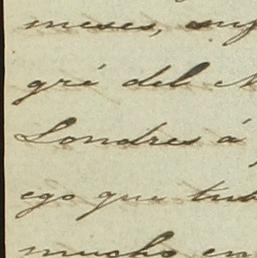 meses,
gré del
Londres á
ego que tub
mucho en